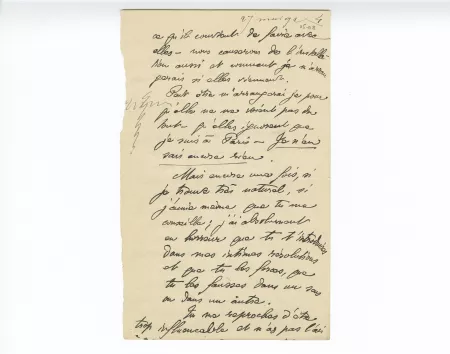 27 mai 92
ce qu'il convient de faire avec
elles – nous causerons de l'installa
tion aussi et comment je m'arran
gerais si elles viennent.
Peut être m'arrangerai je pour
qu'elles ne me voient pas du
tout – qu'elles ignorent que
je suis à Paris – Je n'en
sais encore rien.
Mais encore une fois, si
je trouve très naturel, si
j'aime même que tu me
conseilles, j'ai absolument
en horreur que tu t'introduises
dans mes intimes résolutions
et que tu les forces, que
tu les fausses dans un sens
ou dans un autre.
Tu me reproches d'être
trop influençable et n'as pas l'air